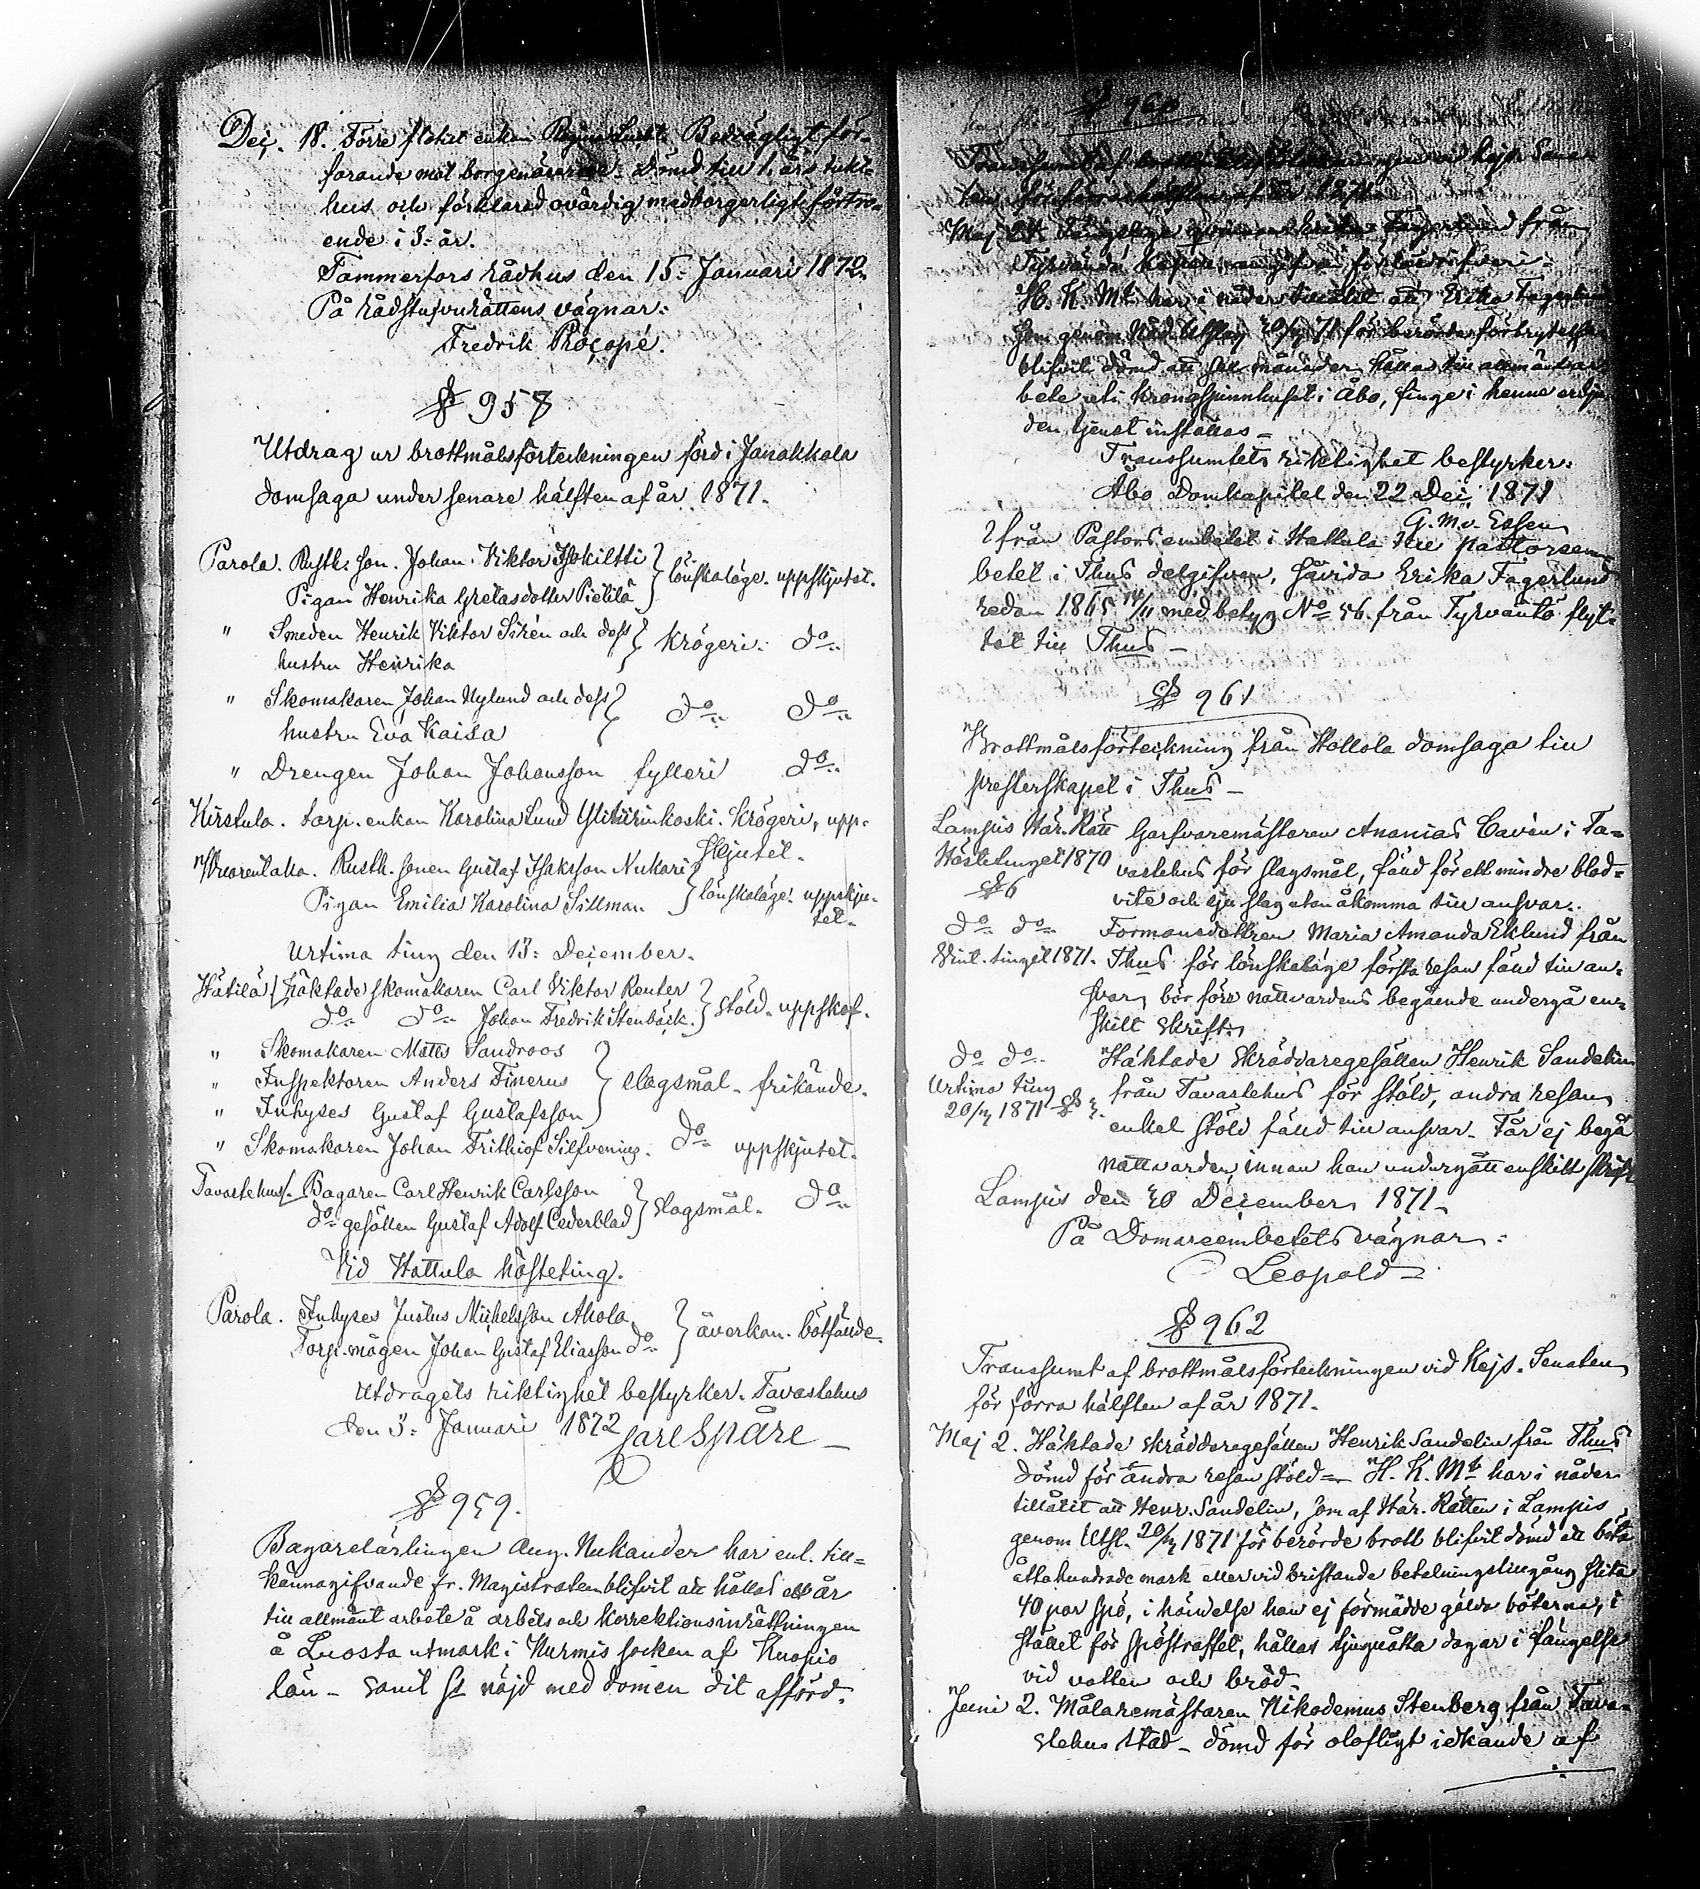 Dec. 18. Förre enkan Bedrägligt för-
farande mot borgenärerne. Dömd till 1. års tukt-
hus och förklarad ovärdig medborgerligt förtro-
ende i 3. år.
Tammerfors rådhus den 15. Januari 1872.
På Rådstufvurättens vägnar:
Fredrik Procopé.
§ 958
Utdrag ur brottmålsförteckningen förd i Janakkala
domsaga under senare hälften af år 1871.
Parola. Rusth. son. Johan Viktor } lönskaläge. uppskjutet.
Pigan Henrika Gretasdotter Pietilä
" Smeden Henrik Viktor Sirén och dess } Krögeri. do
hustru Henrika
" Skomakaren Johan Nylund och dess } do do
hustru Eva Kaisa
" Drengen Johan Johansson fylleri do
Kirstula. torp. enkan Karolina Lund Krögeri, upp-
skjutet.
Rusth. sonen Gustaf Isaksson Nukari } lönskaläge. uppskju-
Pigan Emilia Karolina Sillman tet.
Urtima ting den 13. December.
Hätilä Häktade skomakaren Carl Viktor Renter } stöld. uppskof.
do do Johan Fredrik Stenbäck.
" Skomakaren Matts Sandroos
" Inspektoren Anders } slagsmål. frikände.
" Inhyses Gustaf Gustafsson
" Skomakaren Johan Frithiof Silfvenius. do uppskjutet.
Tavastehus. Bagaren Carl Henrik Carlsson } Slagsmål. do
do gesällen Gustaf Adolf Cederblad
Vid Hattula hösteting.
Parola. Inhyses Justus Michelsson Ahola } åverkan. bötfände.
Torp. mågen Johan Gustaf Eliasson do
Utdragets riktighet bestyrker. Tavastehus
den 3. Januari 1872 Carl Spåre
§ 959.
Bagarelärlingen Aug. Nukander har enl. till-
kännagifvande fr. Magistraten blifvit att hållas ett år
till allmänt arbete å arbets och Korrektionsinrättningen
å Luosta utmark i Nurmis socken af Kuopio
län - samt nöjd med domen dit afförd.
§ 960
Transsumt af brottmålsförteckningen vid Kejs. Sena-
ten för förra hälften af år 1871.
Maj 24. Erika Fagerlund från
Tyrväntö
H. K. Mt har i nåder tillåtit att Erika Fagerlund
som genom för berörde förbrytelse
blifvit dömd att sex månader hållas till allmänt ar-
bete uti Kronospinnhuset i Åbo, finge i henne erbju-
den tjenst inställas -
Transsumtets riktighet bestyrker:
Åbo Domkapitel den 22 Dec. 1871
G. M. v. Essen
från Pastorsembetet i Hattula till pastorsem-
betet i Thus delgifven, såvida Erika Fagerlund
redan 1865 14/11 med betyg No 56 från Tyrväntö flyt-
tat till Thus -
§ 961
Brottmålsförteckning från Hollola domsaga till
presterskapet i Thus -
Lampis Här. Rätt Garfvaremästaren Ananias Cavén i Ta-
Höstetinget 1870 vastehus för slagsmål, fänd för ett mindre blod-
§ 6 vite och sju slag utan åkomma till ansvar.
do do Formansdottren Maria Amanda Eklund från
Vint. tinget 1871. Thus för lönskaläge första resan fänd till an-
svar, bör före nattvardens begående undergå en-
skilt skrift.
do do Häktade Skräddaregesällen Henrik Sandelin
Urtima ting från Tavastehus för stöld, andra resan
1871 § enkel stöld fänd till ansvar. Får ej begå
nattvarden, innan han undergått enskilt skrift
Lampis den 20 December 1871.
På Domareembetets vägnar:
Leopold
§ 962
Transsumt af brottmålsförteckningen vid Kejs. Senaten
för förra hälften af år 1871.
Maj 2. Häktade skräddaregesällen Henrik Sandelin från Thus
dömd för andra resan stöld - H. K. Mt har i nåder
tillåtit att Henr. Sandelin, som af Här. Rätten i Lampis
genom Utsl. 1871 för berörde brott blifvit dömd att böta
åttahundrade mark eller vid bristande betalningstillgång slita
40 par spö, i händelse han ej förmådde gälda böterna, i
stället för spöstraffet, hållas tjuguåtta dagar i fängelse
vid vatten och bröd.
Juni 2. Målaremästaren Nikodemus Stenberg från Tava-
stehus stad - dömd för olofligt idkande af